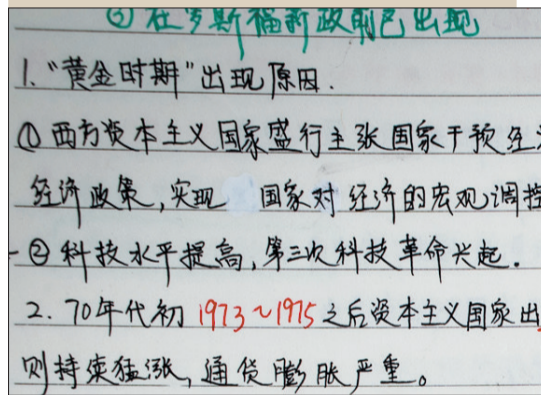 ③在罗斯福新政前已出现
1."黄金时期"出现原因.
①西方资本主义国家盛行主张国家干预经济
经济政策,实现 国家对经济的宏观调控
②科技水平提高,第三次科技革命兴起.
2.70年代初1973~1975之后资本主义国家出
则持续猛涨,通货膨胀严重。